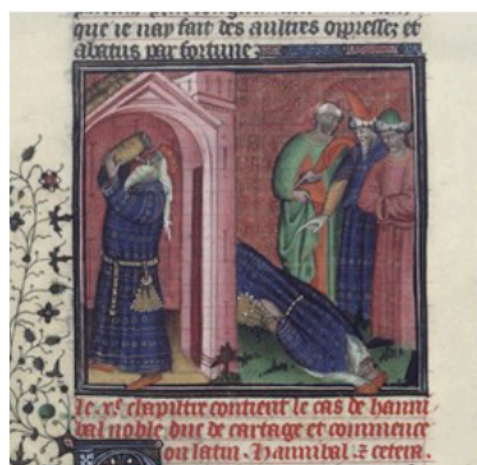 que ie nay fait des aultres oppressez et
abatus par fortune
le .x.e chapiltre contient le cas de hanni
bal noble duc de cartage et commence
ou latin . Hannibal. ⁊ cetera.